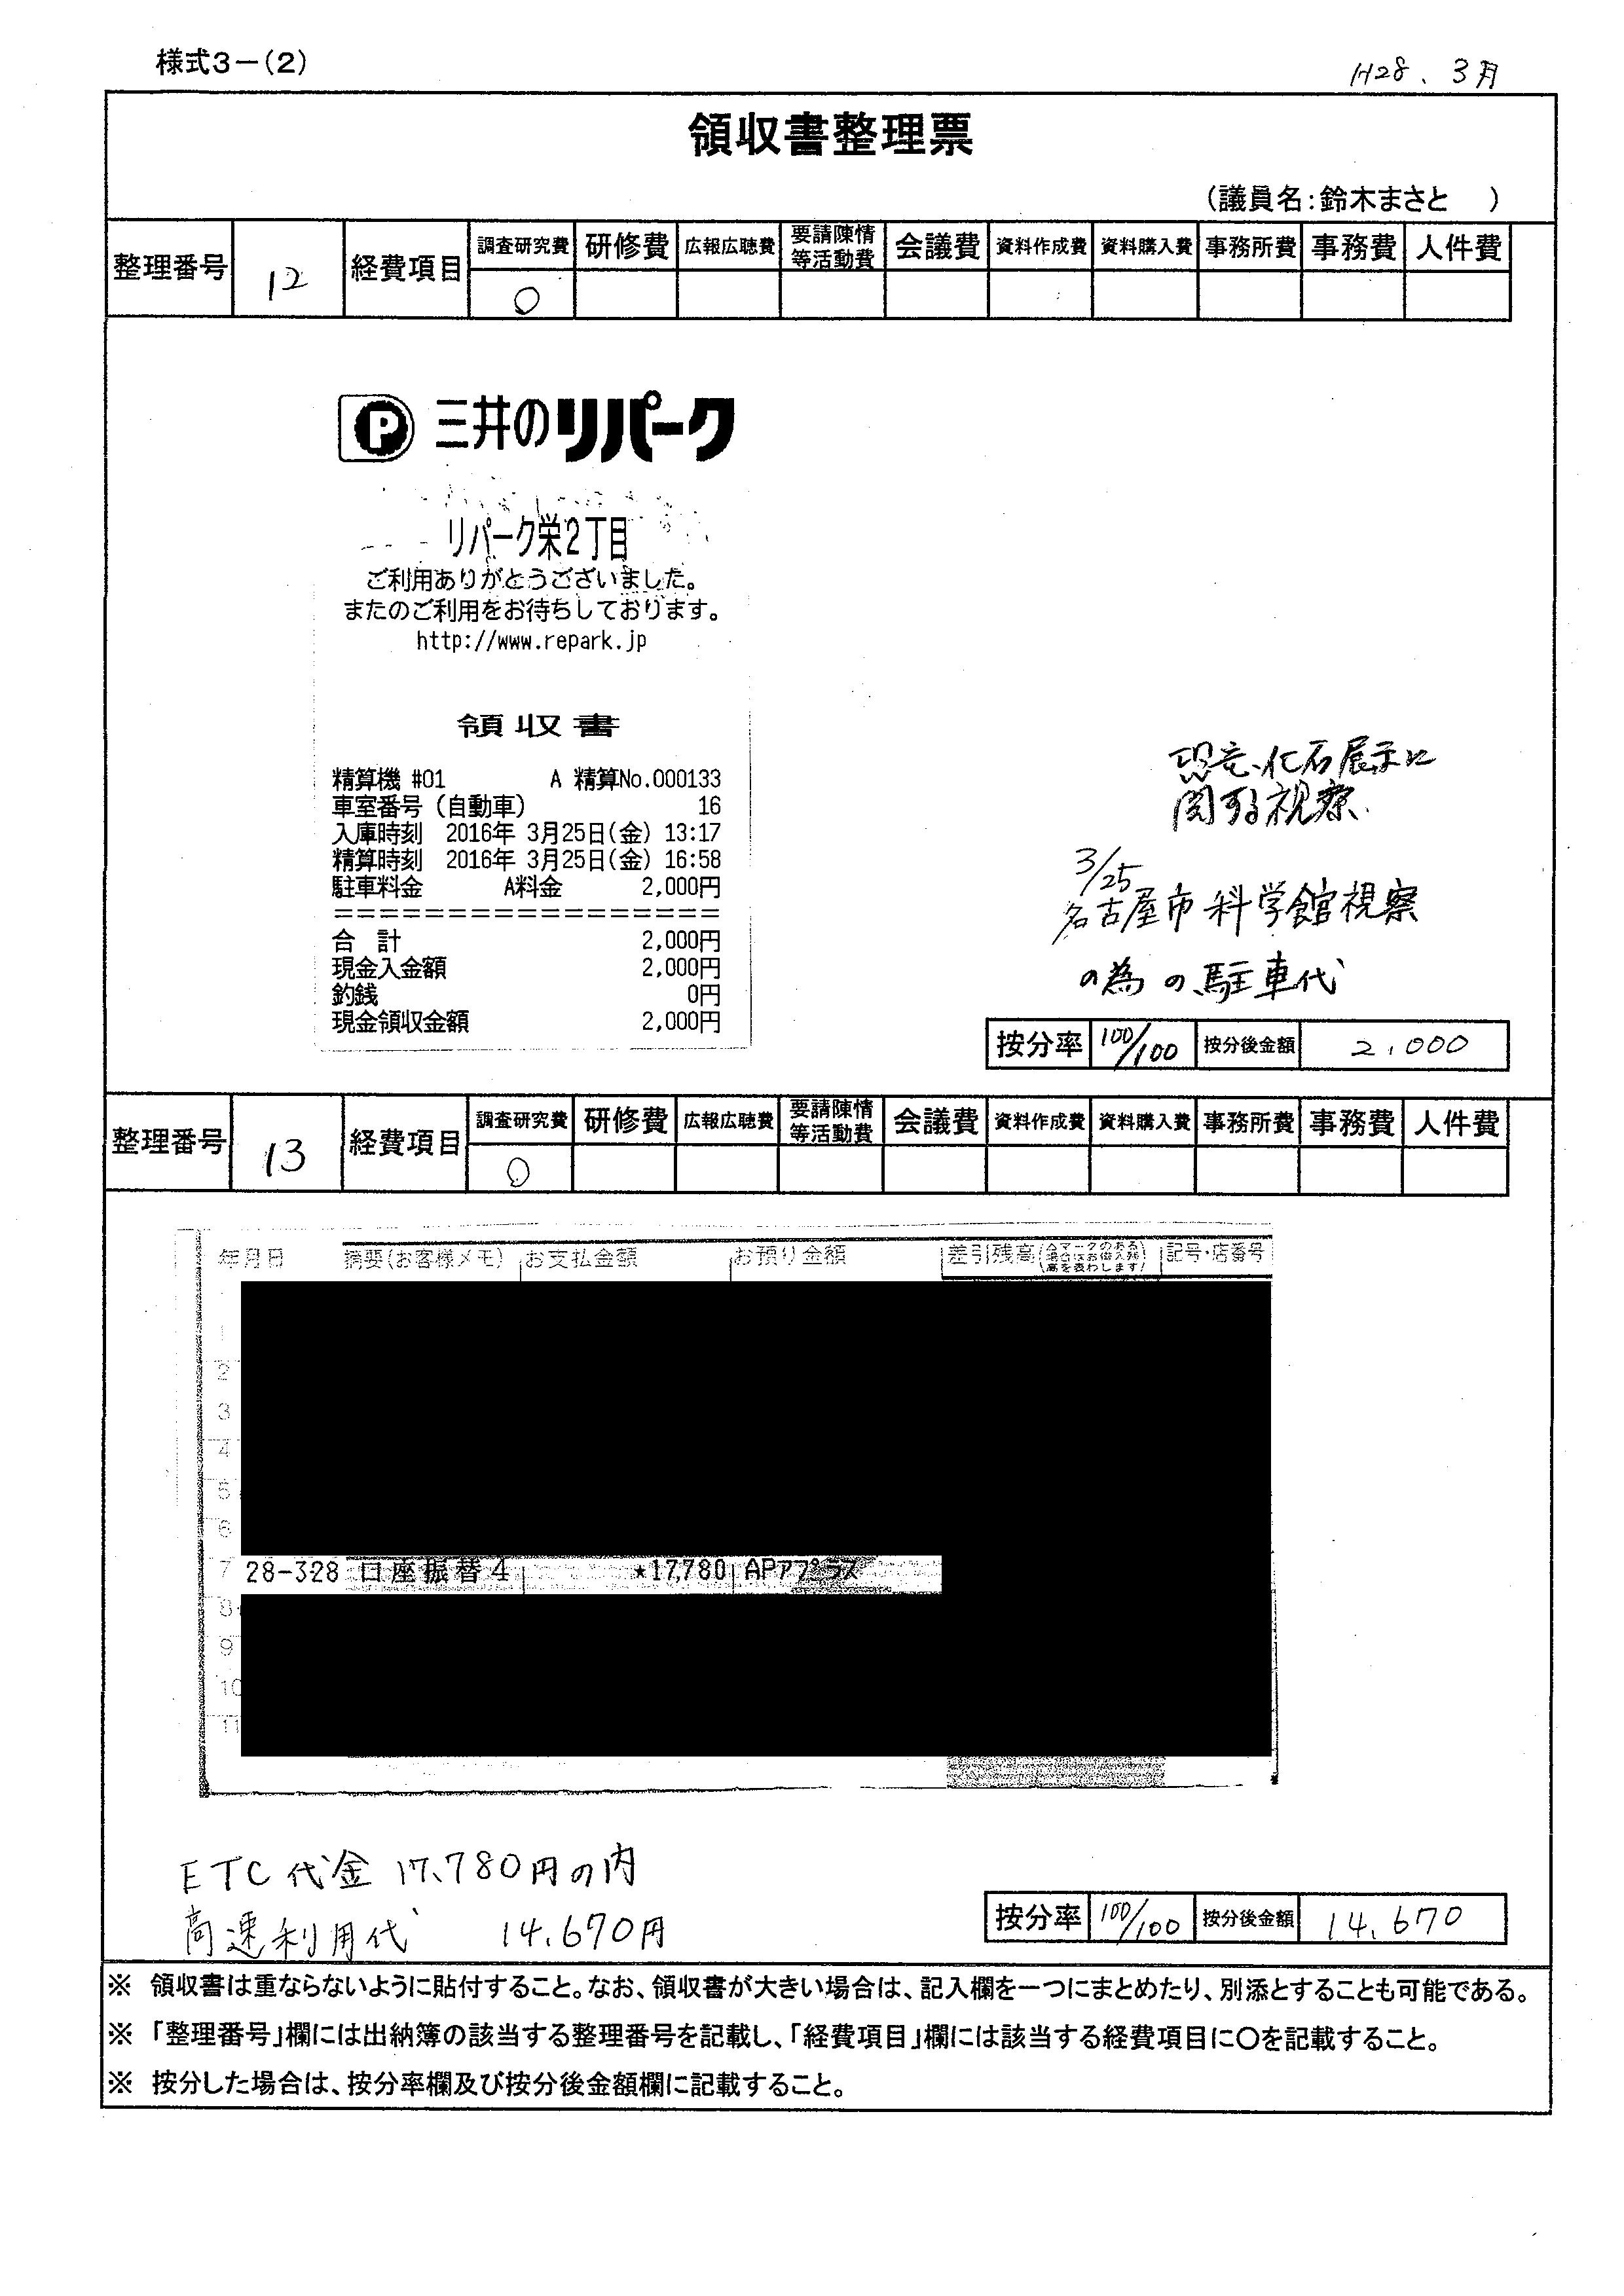 様式3－(2)
H28．3月
領収書整理票
(議員名：鈴木まさと　)
整理番号 12 経費項目 調査研究費 研修費 広報広聴費 要請陳情等活動費 会議費 資料作成費 資料購入費 事務所費 事務費 人件費
○
P 三井のリパーク
リパーク栄2丁目
ご利用ありがとうございました。
またのご利用をお待ちしております。
http://www.repark.jp
領収書
精算機 #01 A 精算No.000133
車室番号（自動車） 16
入庫時刻 2016年 3月25日(金) 13:17
精算時刻 2016年 3月25日(金) 16:58
駐車料金 A料金 2,000円
=================
合 計 2,000円
現金入金額 2,000円
釣銭 0円
現金領収金額 2,000円
恐竜、化石展示に
関する視察、
3/25
名古屋市科学館視察
の為の駐車代
按分率 100/100 按分後金額 2,000
整理番号 13 経費項目 調査研究費 研修費 広報広聴費 要請陳情等活動費 会議費 資料作成費 資料購入費 事務所費 事務費 人件費
○
年月日 摘要(お客様メモ) お支払金額 お預り金額 差引残高 記号・店番号
1
2
3
4
5
6
7 28-328 口座振替4 *17,780 APアプラス
8
9
10
11
ETC代金 17,780円の内
高速利用代 14,670円
按分率 100/100 按分後金額 14,670
※ 領収書は重ならないように貼付すること。なお、領収書が大きい場合は、記入欄を一つにまとめたり、別添とすることも可能である。
※ 「整理番号」欄には出納簿の該当する整理番号を記載し、「経費項目」欄には該当する経費項目に○を記載すること。
※ 按分した場合は、按分率欄及び按分後金額欄に記載すること。